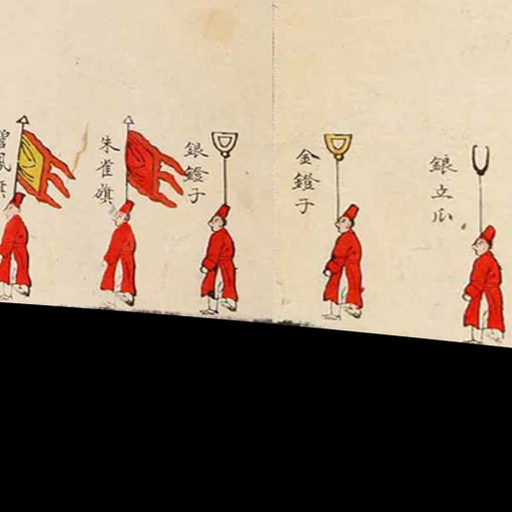 銀立瓜
金鐙子
銀鐙子
朱雀旗
碧鳳旗